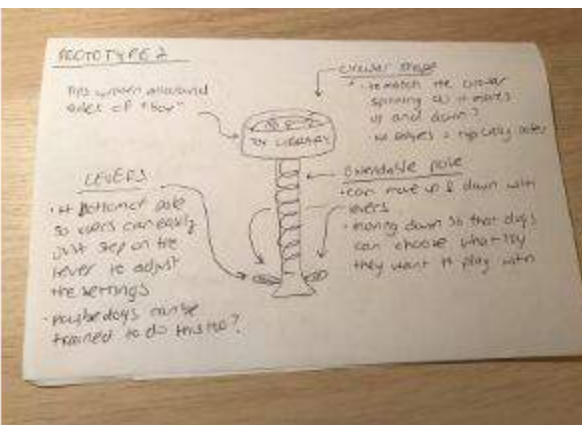 PROTOTYPE 2
around
edges of "box"
TOY LIBRARY
LEVERS
• At bottom of pole
so users can easily
just step on the
lever to adjust
the settings
• maybe dogs can be
trained to do this too?
circular shape
• to match the circular
spinning as it moves
up and down?
• no edges = typically safer
Extendable pole
• can move up & down with
levers
• moving down so that dogs
can choose what toy
they want to play with